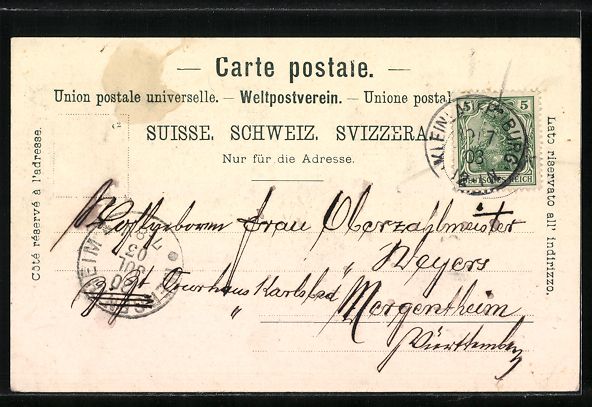 — Carte postale. —
Union postale universelle. — Weltpostverein. — Unione postal
SUISSE. SCHWEIZ. SVIZZERA
Nur für die Adresse.
Côté réservé à l'adresse.
Lato riservato all' indirizzo.
5 5
KLEIN-LAUFENBURG
03
Frau Oberzahlmeister
Meyers
z. Zt. Curhaus Karlsbad
" Mergentheim
Württemberg
MERGENTHEIM